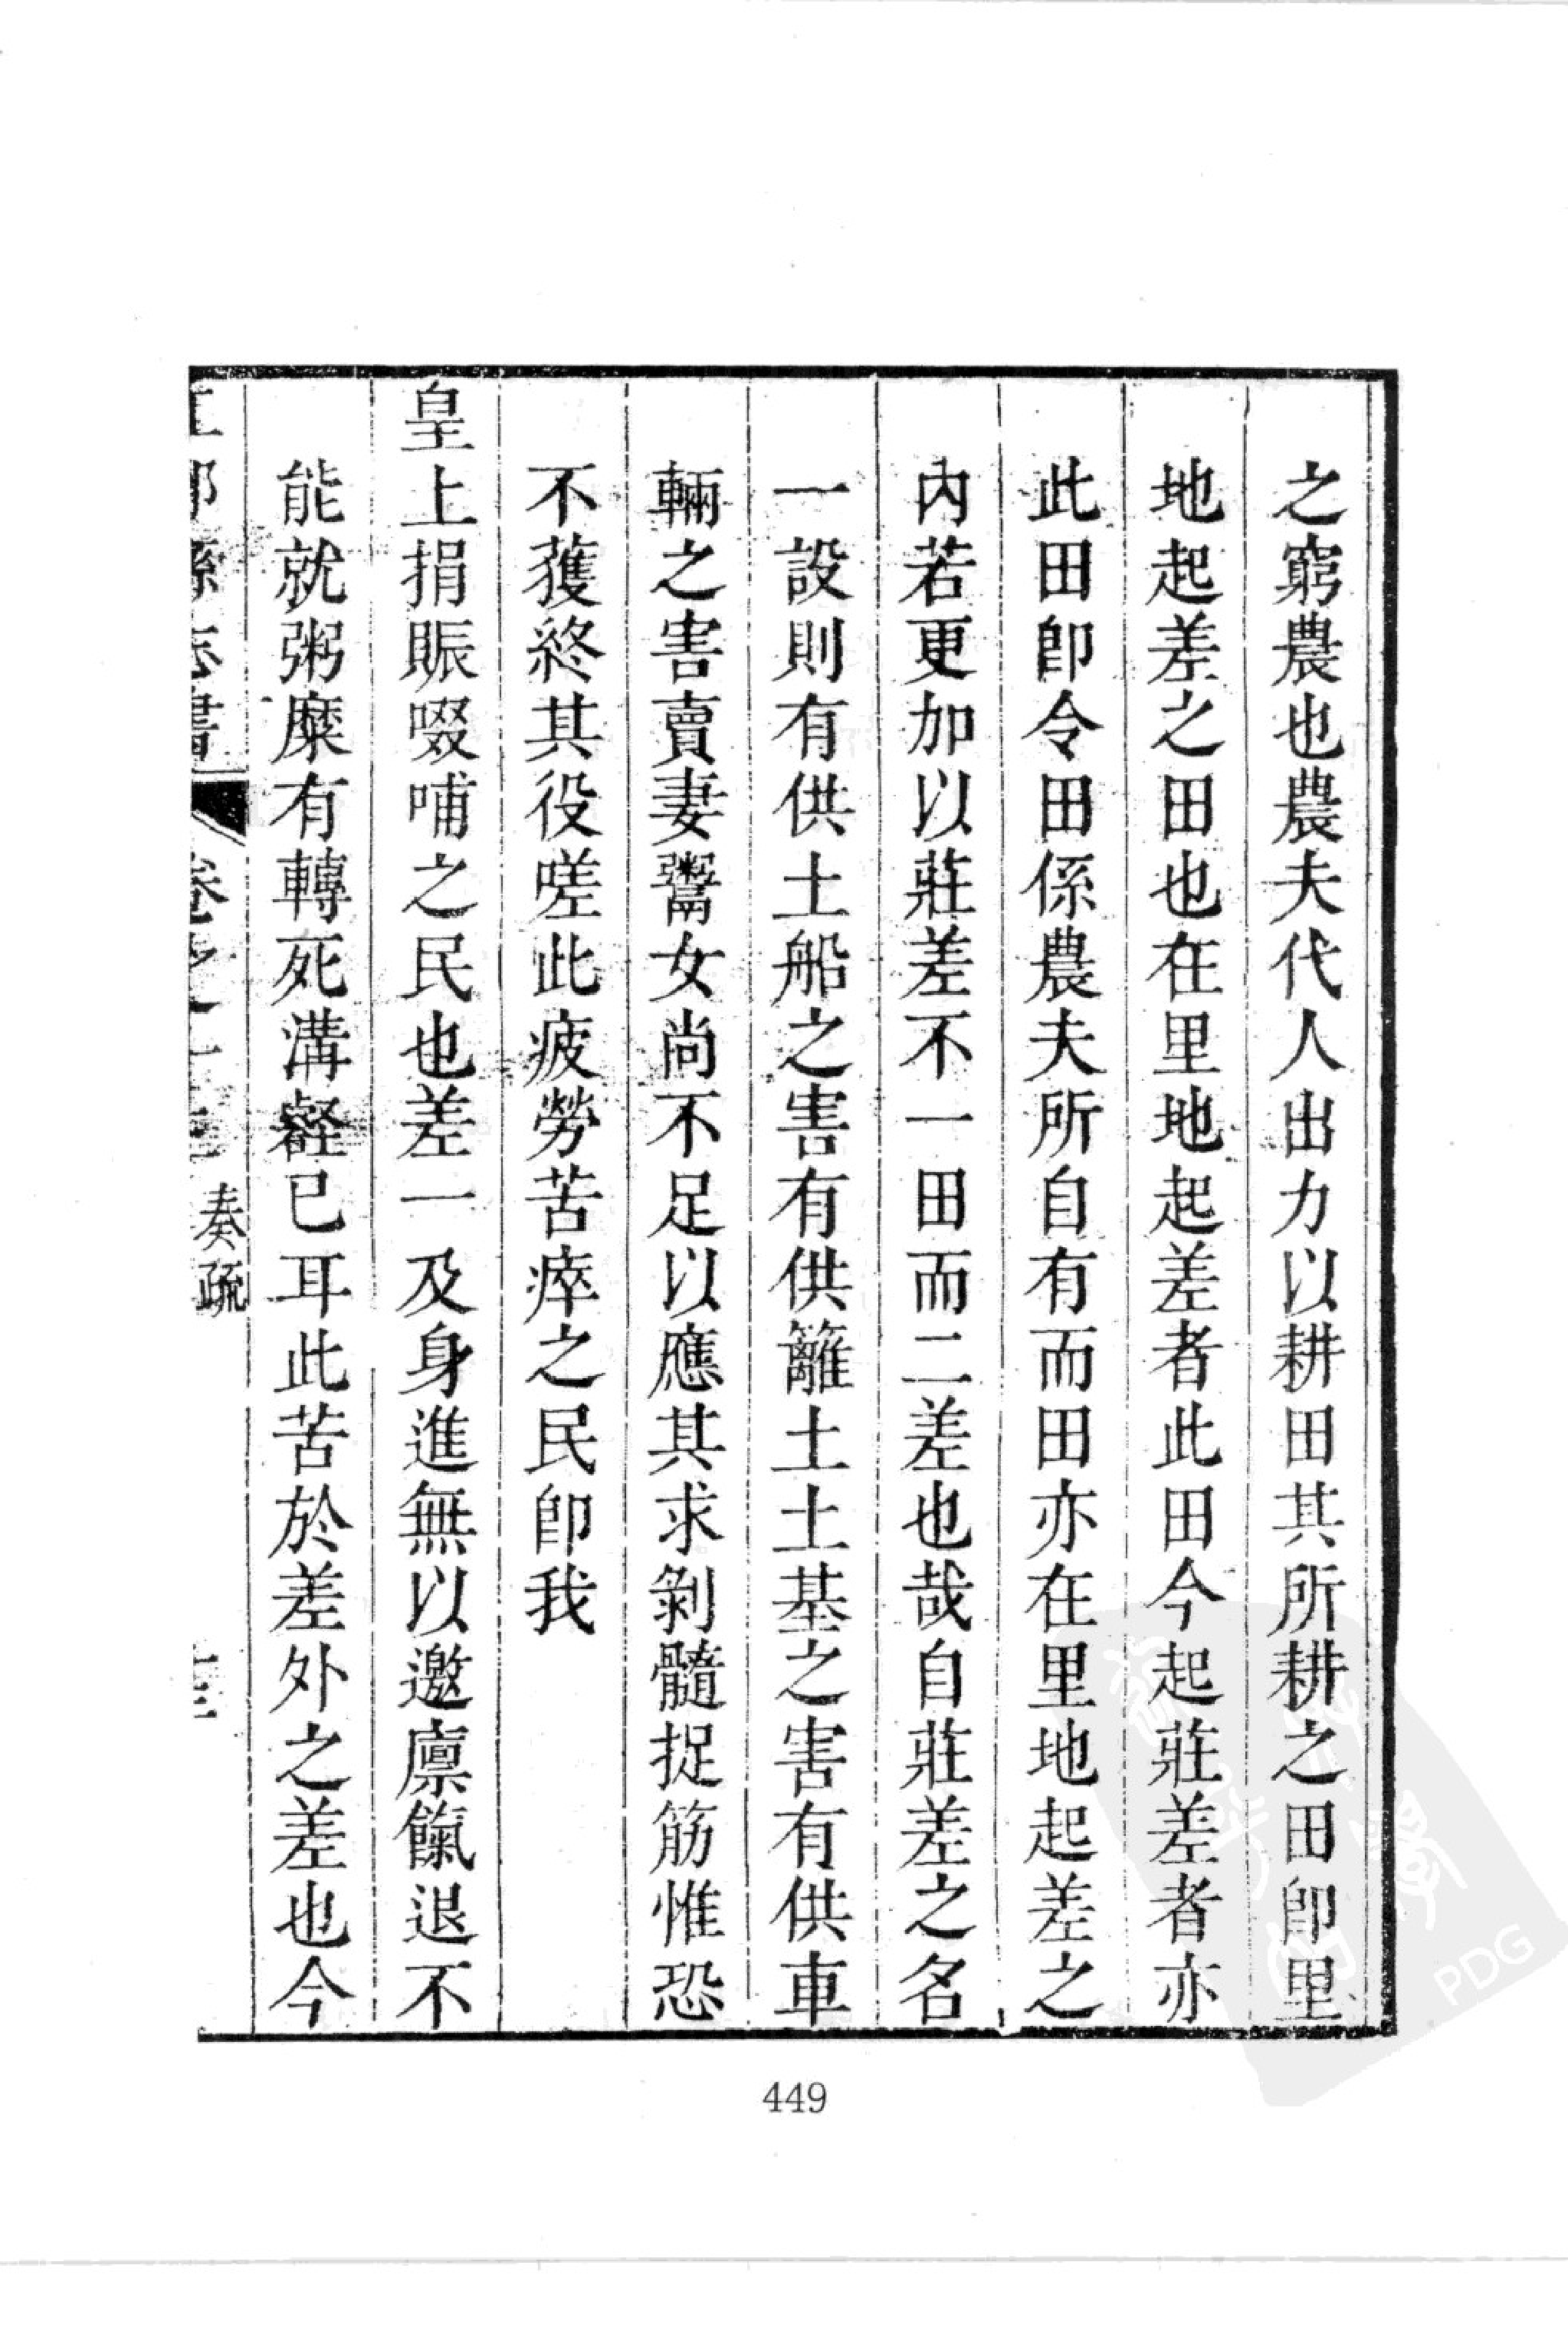 之窮農也農夫代人出力以耕田其所耕之田卽里
地起差之田也在里地起差者此田今起莊差者亦
此田卽令田係農夫所自有而田亦在里地起差之
內若更加以莊差不一田而二差也哉自莊差之名
一設則有供土船之害有供籬土土基之害有供車
輛之害賣妻鬻女尚不足以應其求剝髓捉筋惟恐
不獲終其役嗟此疲勞苦瘁之民卽我
皇上捐賑啜哺之民也差一及身進無以邀廪餼退不
能就粥糜有轉死溝壑已耳此苦於差外之差也今
縣志書 卷之 奏疏
449
PDG